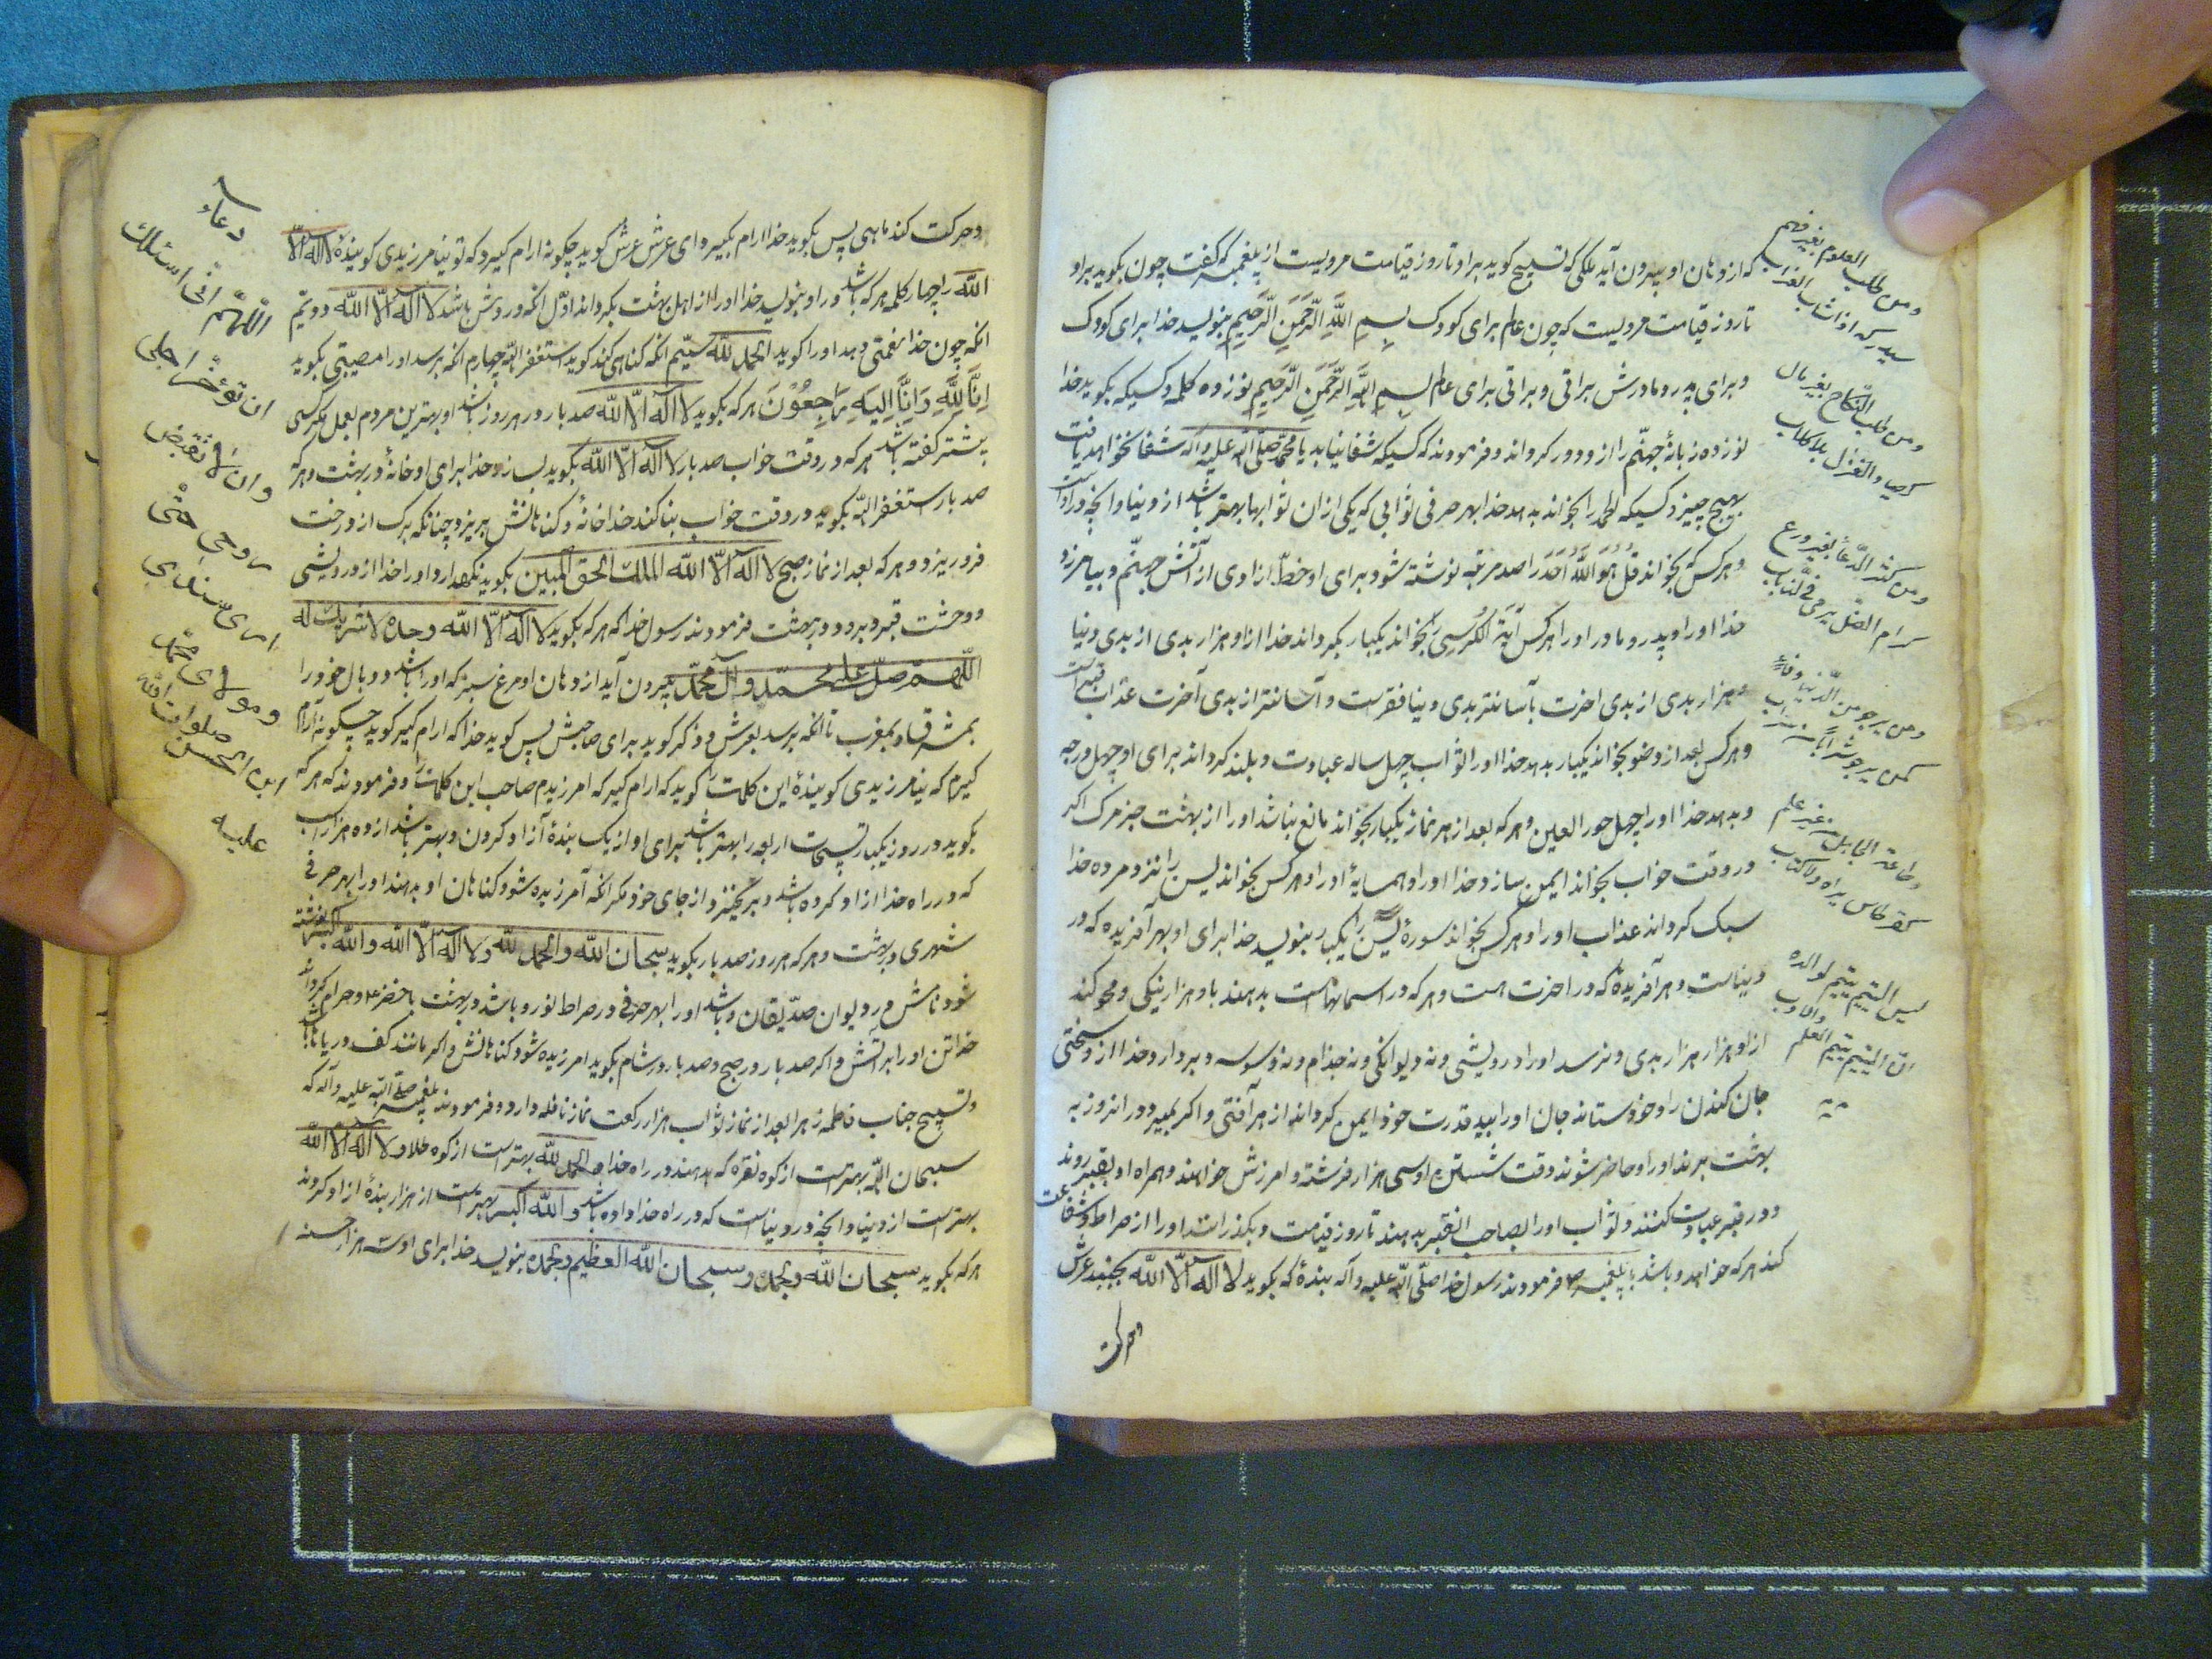 که از دهان او بیرون آید ملکی که تسبیح کوید برای او تا روز قیامت مرویست از پیغمبر که کفت چون بکوید براو
تا روز قیامت مرویست که چون عالم برای کودک بِسمِ اللَّهِ الرَّحمنِ الرَّحیمِ بنویسد خدا برای کودک
و برای پدر و مادرش براتی و براتی برای عالم بسمِ اللهِ الرَّحمنِ الرَّحیمِ نوزده کلمه و کسیکه بکوید خدا
نوزده زبانهٔ جهنّم را از و دور کرداند و فرمودند که کسیکه شفا نیابد یا محمد صلّی الله علیه و آله شفا نخواهد یافت
بهیچ چیز و کسیکه الحمد را بخواند بدهد خدا بهر حرفی ثوابی که یکی از ان ثوابها بهتر باشد از دنیا و انچه در اوست
و هر کس که بخواند قُل هُوَ اللَّهُ اَحَد را صد مرتبه نوشته شود برای او خطّ ازادی از آتش جهنّم و بیامرزد
خدا او را و پدر و مادر او را هر کس آیَةَ الکُرسِی بخواند یکبار بکرداند خدا از او هزار بدی از بدی دنیا
و هزار بدی از بدی اخرت باسانتر بدی دنیا فقرست و آسانتر از بدی آخرت عذاب قبر است
و هر کس بعد از وضو بخواند یکبار بدهد خدا او را ثواب چهل ساله عبادت و بلند کرداند برای او چهل درجه
و بدهد خدا او را چهل حور العین و هر که بعد از هر نماز یکبار بخواند مانع نباشد او را از بهشت جز مرک اکر
در وقت خواب بخواند ایمن سازد خدا او را و همسایهٔ او را و هر کس بخواند یس را نزد مرده خدا
سبک کرداند عذاب او را و هر کس بخواند سورهٔ یس را یکبار بنویسد خدا برای او بهر آفریده که در
دنیاست و هر آفریدهٔ که در اخرت هست و هر که در اسمانهاست بدهند باو هزار نیکی و محو کند
از او هزار هزار بدی و نرسد او را درویشی و نه دیوانکی و نه جذام و نه وسوسه و بردارد خدا از و سختی
جان کندن را و خود ستاند جان او را بید قدرت خود ایمن کرداند از هر آفتی و اکر بمیرد در انروز به
بهشت برند او را و حاضر شوند وقت شستن او سی هزار فرشته و امرزش خواهند و همراه او بقبر روند
و در قبر عبادت کنند و ثواب او را بصاحب القبر بدهند تا روز قیامت و بکذرانند او را از صراط و شفاعت
کند هر که خواهد و باشد با پیغمبر فرمودند رسول خدا صلّی الله علیه و آله بندهٔ که بکوید لا اله الا الله بجنبد عرش
و حرکت
ومن طلب العلوم بغیر فهم
ومن طلب النکاح بغیر مال
ومن کثر الدعاء بغیر ورع
ومن یرجو من الدنیا وفاء
لیس الیتیم یتیم لوالده
انّ الیتیم یتیم العلم والادب
و حرکت کند ماهی پس بکوید خدا ارام بکیر و ای عرش عرش کوید چکونه ارام کیرم و که تو نیامرزیدی کویندهٔ لا اله الّا
الله را چهار کلمه هر که باشد در او بنویسد خدا او را از اهل بهشت بکرداند اوّل انکه در وشش باشد لا اله الّا الله دویّم
انکه چون خدا نعمتی دهد او را کوید الحمد لله سیّم انکه کناهی کند کوید استغفر الله چهارم انکه برسد او را مصیبتی بکوید
اِنَّا لِلَّهِ وَاِنَّا اِلَیهِ رَاجِعُونَ هر که بکوید لا اله الّا الله صد بار در هر روز باشد او بهترین مردم بعمل مکر کسی
بیشتر کفته باشد هر که در وقت خواب صد بار لا اله الّا الله بکوید بسازد خدا برای او خانهٔ در بهشت و هر که
صد بار استغفر الله بکوید در وقت خواب بنا کند خدا خانهٔ و کناهانش بریزد چنانکه برک از درخت
فرو ریزد و هر که بعد از نماز صبح لا اله الّا الله الملک الحق المبین بکوید نکهدارد او را خدا از درویشی
و وحشت قبر و برود در بهشت فرمودند رسول خدا که هر که بکوید لا اله الّا الله وحده لا شریک له
اللّهم صلّ علی محمّد و آل محمّد بیرون آید از دهان او مرغ سبز که او را باشد دو بال خود را
بمشرق و بمغرب تا انکه برسد بعرش و ذکر کوید برای صاحبش پس کوید خدا که ارام کیر کوید چکونه آرام
کیرم که نیامرزیدی کویندهٔ این کلمات را کوید که ارام کیر که امرزیدم صاحب این کلمات را و فرمودند که هر که
بکوید در روز یکبار تسبیحات اربعه را بهتر باشد برای او از یک بندهٔ آزاد کردن و بهتر باشد از ده هزار اسب
که در راه خدا ازاد کرده باشد و برنخیزد از جای خود مکر انکه آمرزیده شود کناهان او بدهند او را بهر حرفی
شهری در بهشت و هر که هر روز صد بار بکوید سبحان الله والحمد لله ولا اله الّا الله والله اکبر نوشته
شود نامش در دیوان صدّیقان و باشد او را بهر حرفی در صراط نور و باشد در بهشت با خضر و حرام کرداند
خدا تن او را بر آتش و اکر صد بار در صبح و صد بار در شام بکوید امرزیده شود کناهانش و اکر مانند کف دریاها باشد
و تسبیح جناب فاطمه زهرا بعد از نماز ثواب هزار رکعت نماز نافله دارد و فرمودند پیغمبر صلّی الله علیه و آله که
سبحان الله بهتر است از کوه نقره که بدهند در راه خدا و الحمد لله بهتر است از کوه طلا و لا اله الّا الله
بهتر است از دنیا و انچه در دنیاست که در راه خدا داده باشد و الله اکبر بهتر است از هزار بندهٔ ازاد کردند
هر که بکوید سبحان الله وبحمده وسبحان الله العظیم وبحمده بنویسد خدا برای او سه هزار حسنه
دعاء
اللّهمّ انّی اسئلک
ان تؤخّر اجلی
وان لا تقبض
روحی حتّی
اری سیّدی
ومولای محمّد
ابن الحسن صلوات الله
علیه